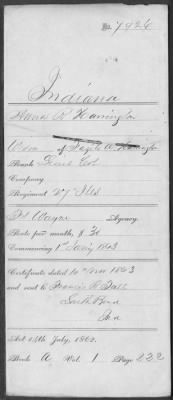 No. 7926
Indiana
Anna R. Harrington
Widow of Fazelo A. Harrington
Rank Lieut Col
Company
Regiment 27 Ills
Ft Wayne Agency.
Rate per month, $ 30
Commencing 1st Jan'y 1863
Certificate dated 10 Nov 1863
and sent to Francis R.
South Bend
Ind
Act 14th July, 1862.
Book A Vol. 1 Page 232